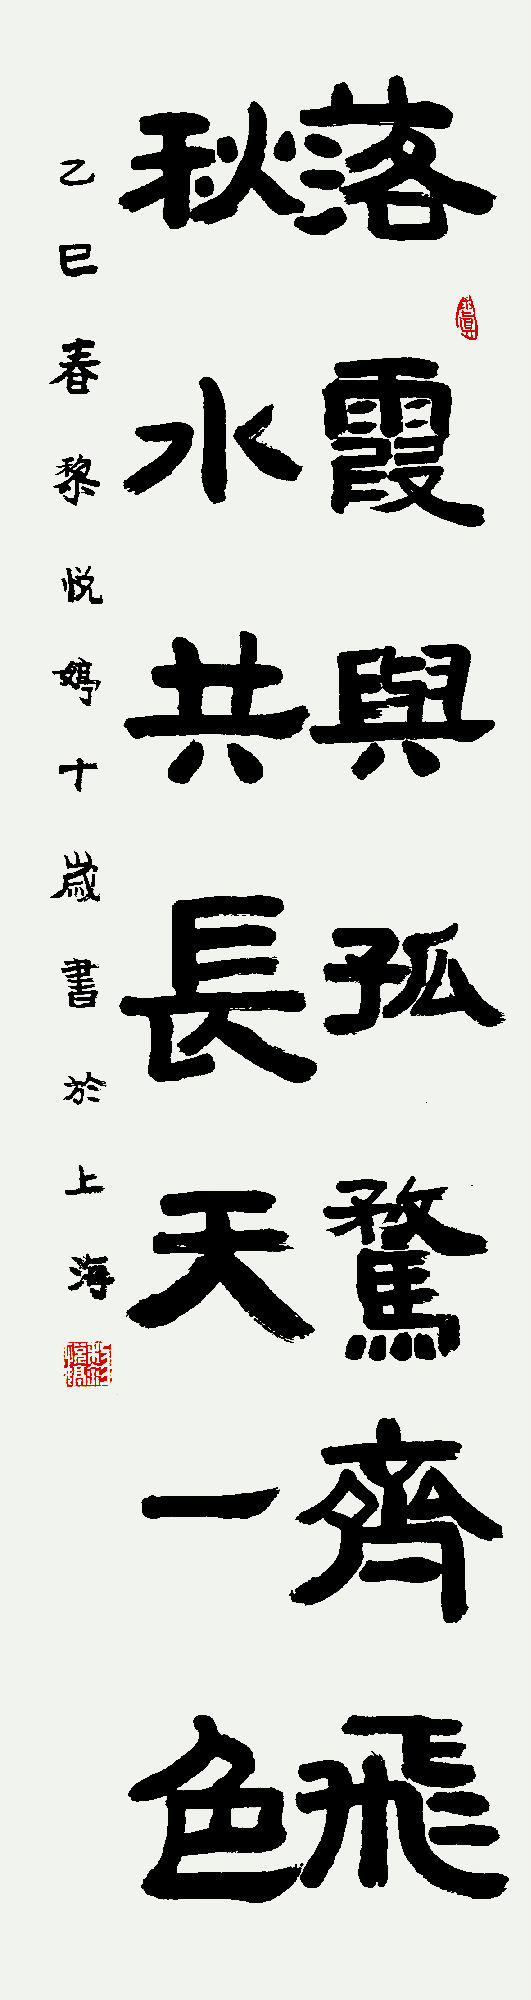 落霞與孤鶩齊飛
秋水共長天一色
乙巳春黎悦婷十歲書於上海